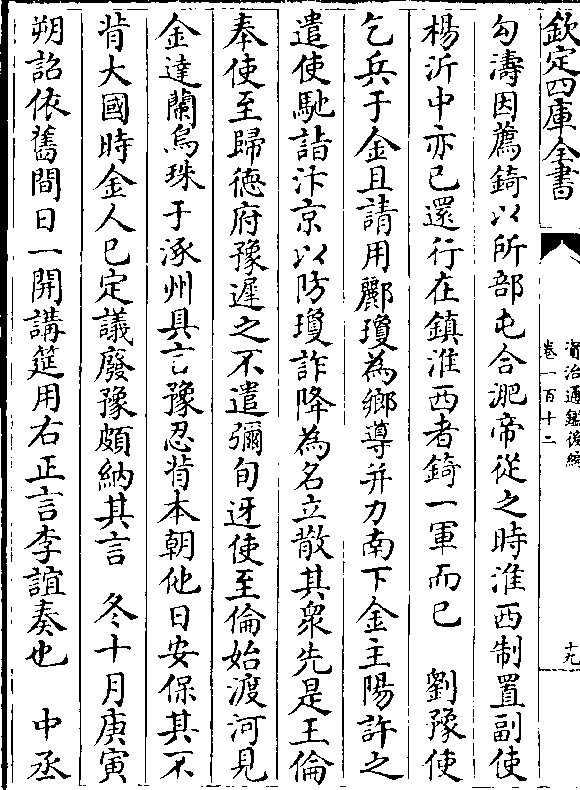 欽定四庫全書
資治通鑑後編
卷一百十二
十九
勾濤因薦錡以所部屯合淝帝從之時淮西制置副使
楊沂中亦已還行在鎮淮西者錡一軍而已　劉豫使
乞兵于金且請用酈瓊為鄉導并力南下金主陽許之
遣使馳詣汴京以防瓊詐降為名立散其衆先是王倫
奉使至歸德府豫遲之不遣彌旬迓使至倫始渡河見
金達蘭烏珠于涿州具言豫忍背本朝他日安保其不
背大國時金人已定議廢豫頗納其言　冬十月庚寅
朔詔依舊間日一開講筵用右正言李誼奏也　中丞